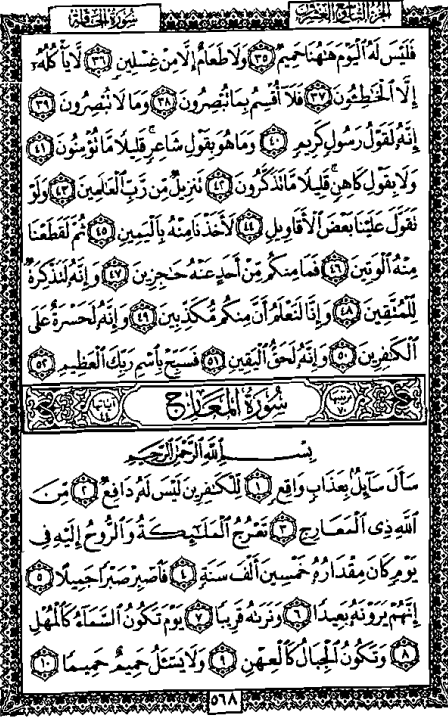 الجزء التاسع والعشرون سورة الحاقة
فَلَيْسَ لَهُ ٱلْيَوْمَ هَٰهُنَا حَمِيمٌ ٣٥ وَلَا طَعَامٌ إِلَّا مِنْ غِسْلِينٍ ٣٦ لَّا يَأْكُلُهُۥٓ
إِلَّا ٱلْخَٰطِـُٔونَ ٣٧ فَلَآ أُقْسِمُ بِمَا تُبْصِرُونَ ٣٨ وَمَا لَا تُبْصِرُونَ ٣٩
إِنَّهُۥ لَقَوْلُ رَسُولٍ كَرِيمٍ ٤٠ وَمَا هُوَ بِقَوْلِ شَاعِرٍ ۚ قَلِيلًا مَّا تُؤْمِنُونَ ٤١
وَلَا بِقَوْلِ كَاهِنٍ ۚ قَلِيلًا مَّا تَذَكَّرُونَ ٤٢ تَنزِيلٌ مِّن رَّبِّ ٱلْعَٰلَمِينَ ٤٣ وَلَوْ
تَقَوَّلَ عَلَيْنَا بَعْضَ ٱلْأَقَاوِيلِ ٤٤ لَأَخَذْنَا مِنْهُ بِٱلْيَمِينِ ٤٥ ثُمَّ لَقَطَعْنَا
مِنْهُ ٱلْوَتِينَ ٤٦ فَمَا مِنكُم مِّنْ أَحَدٍ عَنْهُ حَٰجِزِينَ ٤٧ وَإِنَّهُۥ لَتَذْكِرَةٌ
لِّلْمُتَّقِينَ ٤٨ وَإِنَّا لَنَعْلَمُ أَنَّ مِنكُم مُّكَذِّبِينَ ٤٩ وَإِنَّهُۥ لَحَسْرَةٌ عَلَى
ٱلْكَٰفِرِينَ ٥٠ وَإِنَّهُۥ لَحَقُّ ٱلْيَقِينِ ٥١ فَسَبِّحْ بِٱسْمِ رَبِّكَ ٱلْعَظِيمِ ٥٢
ترتيبها ٧٠ سُورَةُ المَعَارِجِ آياتها ٤٤
بِسْمِ ٱللَّهِ ٱلرَّحْمَٰنِ ٱلرَّحِيمِ
سَأَلَ سَآئِلٌۢ بِعَذَابٍ وَاقِعٍ ١ لِّلْكَٰفِرِينَ لَيْسَ لَهُۥ دَافِعٌ ٢ مِّنَ
ٱللَّهِ ذِى ٱلْمَعَارِجِ ٣ تَعْرُجُ ٱلْمَلَٰٓئِكَةُ وَٱلرُّوحُ إِلَيْهِ فِى
يَوْمٍ كَانَ مِقْدَارُهُۥ خَمْسِينَ أَلْفَ سَنَةٍ ٤ فَٱصْبِرْ صَبْرًا جَمِيلًا ٥
إِنَّهُمْ يَرَوْنَهُۥ بَعِيدًا ٦ وَنَرَىٰهُ قَرِيبًا ٧ يَوْمَ تَكُونُ ٱلسَّمَآءُ كَٱلْمُهْلِ
٨ وَتَكُونُ ٱلْجِبَالُ كَٱلْعِهْنِ ٩ وَلَا يَسْـَٔلُ حَمِيمٌ حَمِيمًا ١٠
٥٦٨